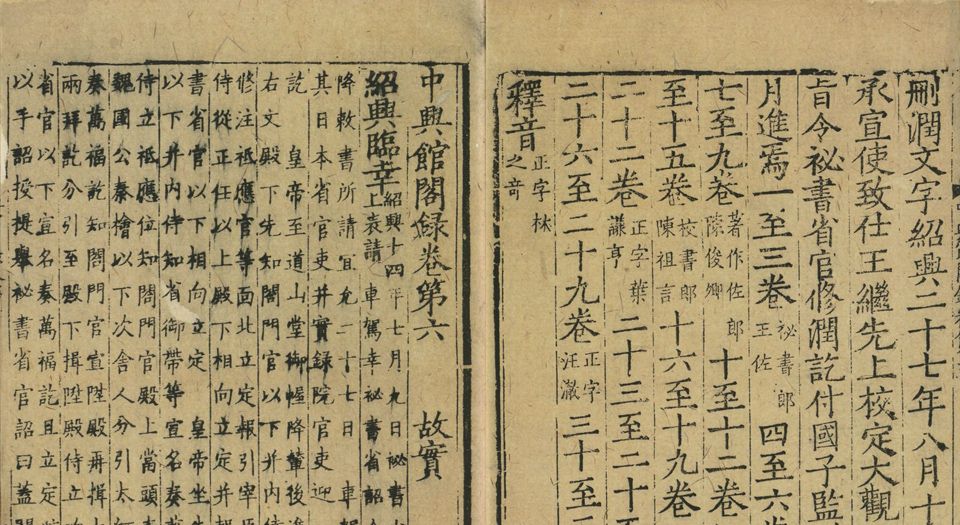 刪潤文字紹興二十七年八月十
承宣使致仕王繼先上校定大觀
旨今祕書省官修潤訖付國子監
月進焉一至三卷祕書郎王佐 四至六
七至九卷著作佐郎陳俊卿 十至十二卷
至十五卷校書郎陳祖言 十六至十九卷
二十二卷正字葉謙亨 二十三至二十
二十六至二十九卷正字汪澈 三十至
釋音正字林之奇
中興館閣録卷第六 故實
紹興臨幸紹興十四年七月九日祕書上表請車駕幸祕書省詔
降敕書所請宜允二十七日車
其日本省官吏并實録院官吏迎
訖 皇帝至道山堂御幄降輦後
右文殿下先知閤門官以下并内
修注祗應官等面北立定報引宰
侍從正任以上殿下相向立定并
書省官以下相向立定 皇帝坐
以下并内侍知省御帶等宣名奏
侍立祗應位知閤門官殿上當頭
魏國公秦檜以下次舍人分引太
奏萬福訖知閤門官宣陞殿再揖
兩拜訖分引至殿下揖陞殿侍立
省官以下宣名奏萬福訖且立定
以手詔授提舉祕書省官詔曰蓋